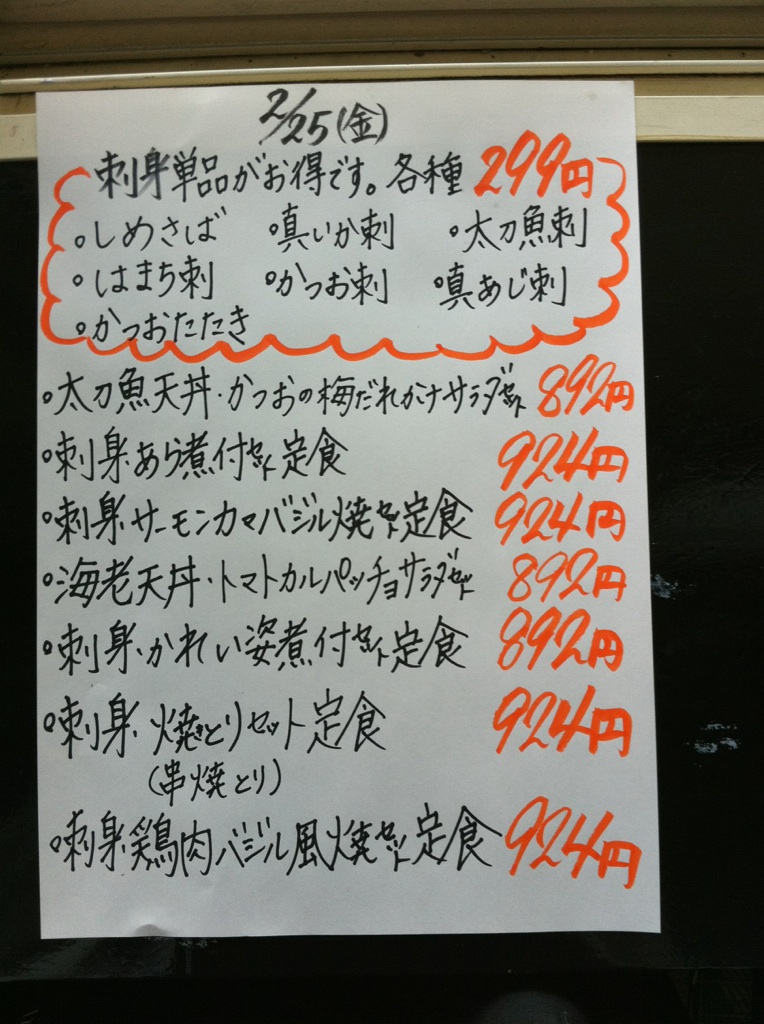 2/25(金)
刺身単品がお得です。各種 299円
・しめさば ・真いか刺 ・太刀魚刺
・はまち刺 ・かつお刺 ・真あじ刺
・かつおたたき
・太刀魚天丼・かつおの梅だれかけサラダセット 892円
・刺身・あら煮付セット定食 924円
・刺身・サーモンカマバジル焼セット定食 924円
・海老天丼・トマトカルパッチョサラダセット 892円
・刺身・かれい姿煮付セット定食 892円
・刺身・焼とりセット定食 924円
(串焼とり)
・刺身・鶏肉バジル風焼セット定食 924円